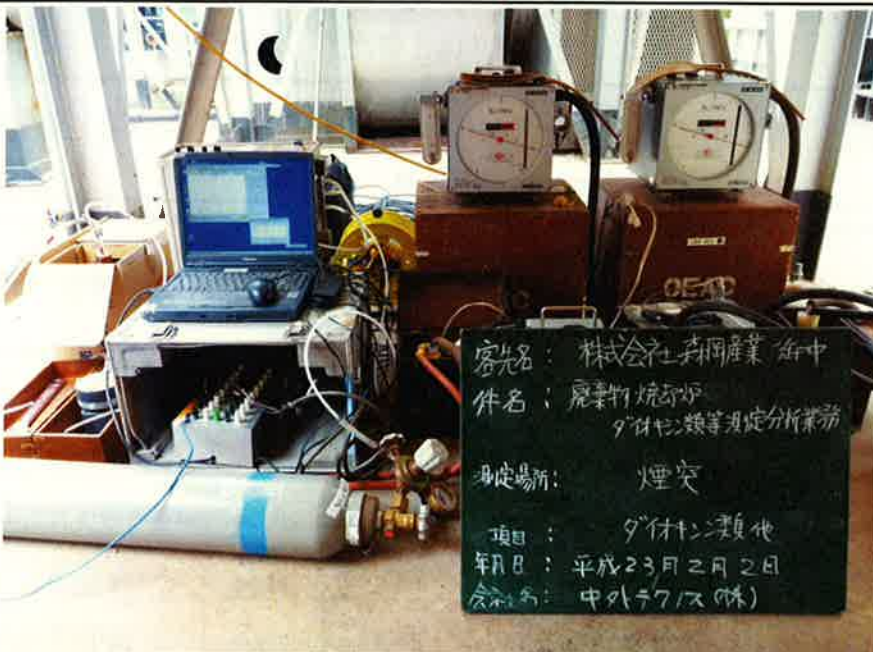 OEAC
客先名： 株式会社森岡産業 御中
件名： 廃棄物焼却炉
ダイオキシン類等測定分析業務
測定場所： 煙突
項目： ダイオキシン類他
年月日： 平成23月2月2日
会社名： 中外テクノス(株)